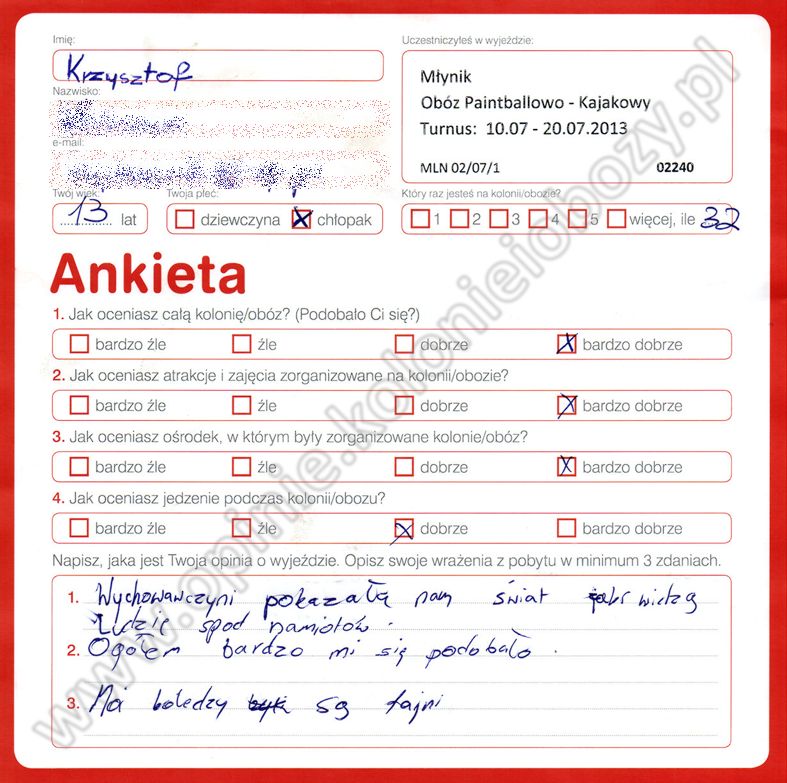 Imię:
Krzysztof
Nazwisko:
e-mail:
Twój wiek:
13 lat
Twoja płeć:
dziewczyna chłopak
Uczestniczyłeś w wyjeździe:
Młynik
Obóz Paintballowo - Kajakowy
Turnus: 10.07 - 20.07.2013
MLN 02/07/1 02240
Który raz jesteś na kolonii/obozie?
1 2 3 4 5 więcej, ile 32
Ankieta
1. Jak oceniasz całą kolonię/obóz? (Podobało Ci się?)
bardzo źle źle dobrze bardzo dobrze
2. Jak oceniasz atrakcje i zajęcia zorganizowane na kolonii/obozie?
bardzo źle źle dobrze bardzo dobrze
3. Jak oceniasz ośrodek, w którym były zorganizowane kolonie/obóz?
bardzo źle źle dobrze bardzo dobrze
4. Jak oceniasz jedzenie podczas kolonii/obozu?
bardzo źle źle dobrze bardzo dobrze
Napisz, jaka jest Twoja opinia o wyjeździe. Opisz swoje wrażenia z pobytu w minimum 3 zdaniach.
1. Wychowawczyni pokazałą nam świat widzą
Ludzie spod namiotów.
2. Ogółem bardzo mi się podobało.
3. Moi koledzy są fajni
www.opinie.kolonieiobozy.pl